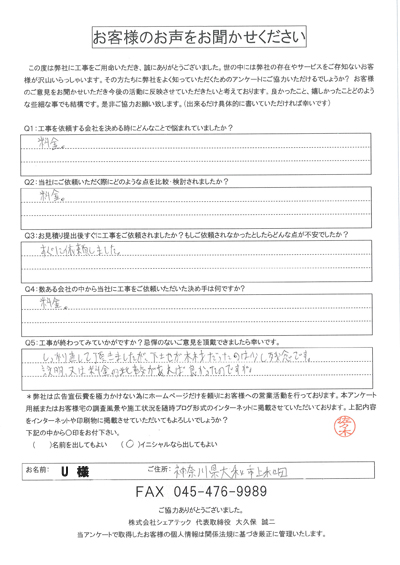 お客様のお声をお聞かせください
この度は弊社に工事をご用命いただき、誠にありがとうございました。世の中には弊社の存在やサービスをご存知ないお客
様が沢山いらっしゃいます。その方たちに弊社をよく知っていただくためのアンケートにご協力いただけるでしょうか? お客様
のご意見をお聞かせいただき今後の活動に反映させていただきたいと考えております。良かったこと、嬉しかったことどのよう
な些細な事でも結構です。是非ご協力お願い致します。(出来るだけ具体的に書いていただければ幸いです)
Q1:工事を依頼する会社を決める時にどんなことで悩まれていましたか?
料金。
Q2:当社にご依頼いただく際にどのような点を比較・検討されましたか?
料金。
Q3:お見積り提出後すぐに工事をご依頼されましたか?もしご依頼されなかったとしたらどんな点が不安でしたか?
すぐに依頼しました。
Q4:数ある会社の中から当社に工事をご依頼いただいた決め手は何ですか?
料金。
Q5:工事が終わってみていかがですか?忌憚のないご意見を頂戴できましたら幸いです。
しっかり直して頂きましたが、下士セが木材だったのは少し
説明又は料金の
*弊社は広告宣伝費を極力かけない為にホームページだけを頼りにお客様への営業活動を行っております。本アンケート
用紙またはお客様宅の調査風景や施工状況を随時ブログ形式のインターネットに掲載させていただいております。上記内容
をインターネットや印刷物に掲載させていただいてもよろしいでしょうか?
下記の中から〇印をお付下さい。
( )名前を出してもよい (〇)イニシャルなら出してもよい
お名前: U 様 ご住所: 神奈川県大和市上和田
FAX 045-476-9989
ご協力ありがとうございました。
株式会社シェアテック 代表取締役 大久保 誠二
当アンケートで取得したお客様の個人情報は関係法規に基づき厳正に管理いたします。